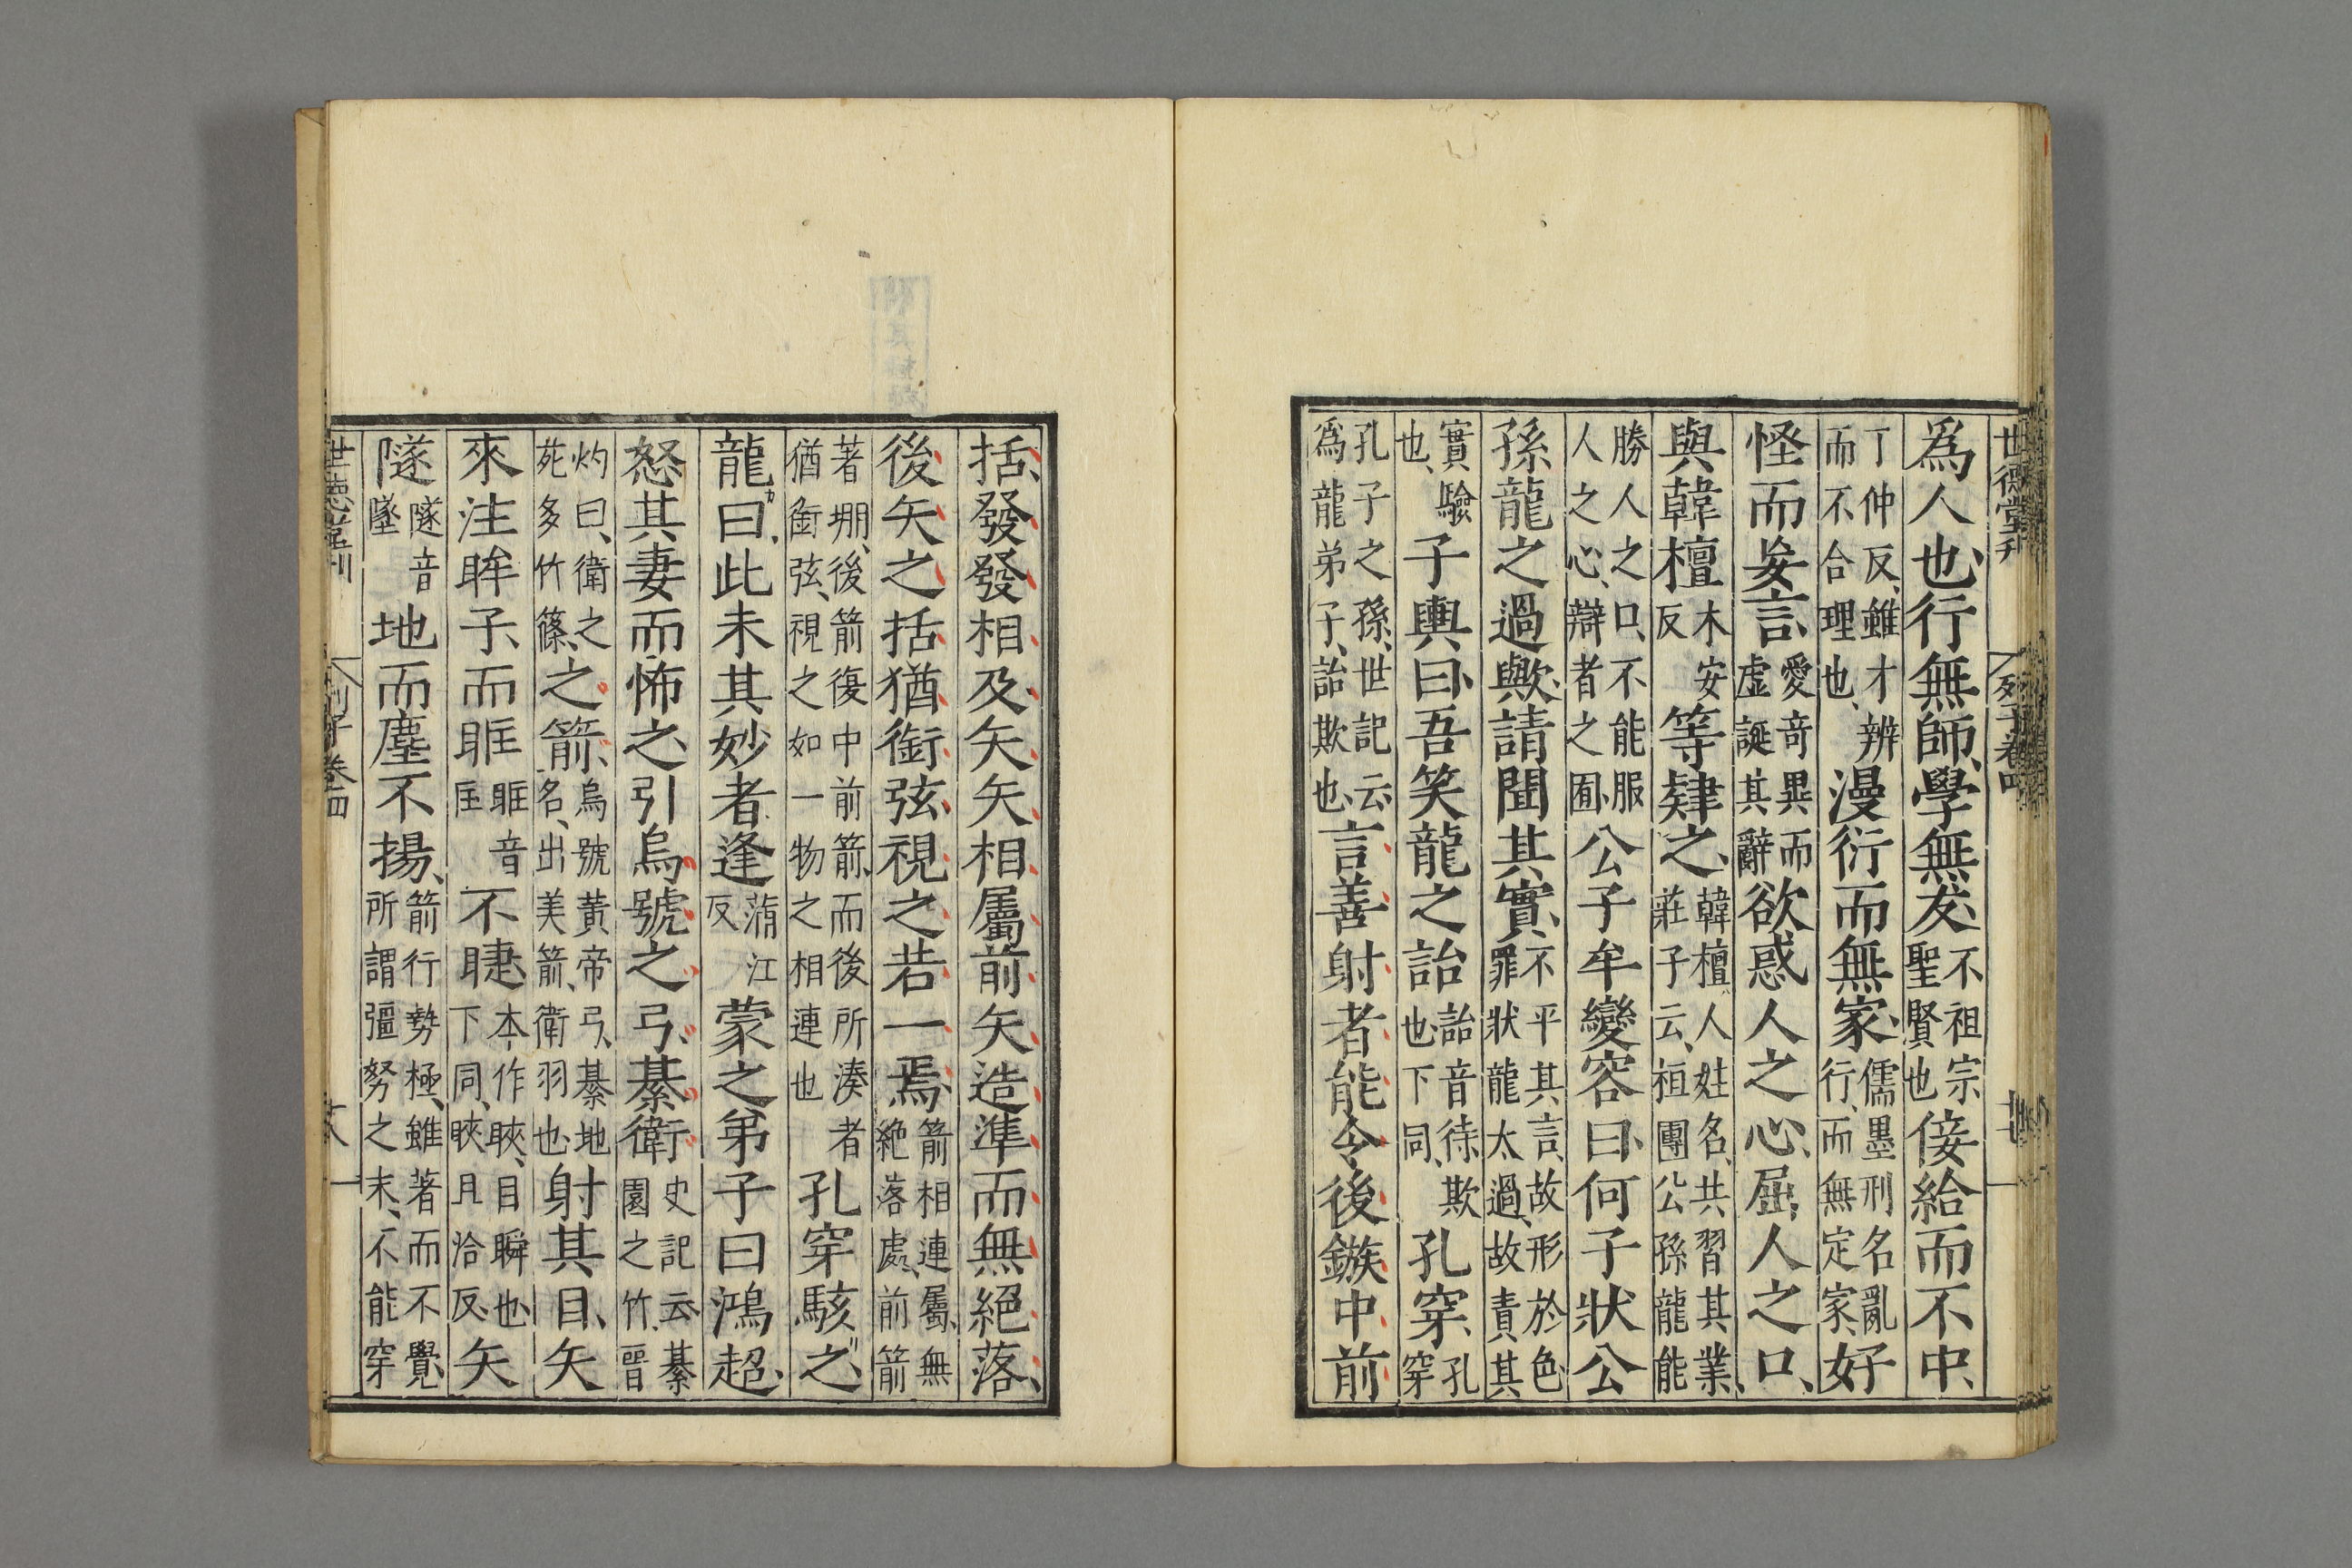 世德堂刊 列子卷四 廿七
爲人也行無師學無友不祖宗聖賢也佞給而不中
丁仲反雖才辨而不合理也漫衍而無家儒墨刑名亂行而無定家好
怪而妄言愛奇異而虛誕其辭欲惑人之心屈人之口
與韓檀木安反等肄之韓檀人姓名共習其業莊子云桓團公孫龍能
勝人之口不能服人之心辯者之囿公子牟變容曰何子狀公
孫龍之過歟請聞其實不平其言故形於色罪狀龍太過故責其
實驗也子輿曰吾笑龍之詒詒音待欺也下同孔穿孔穿
孔子之孫世記云爲龍弟子詒欺也言善射者能令後鏃中前
括發發相及矢矢相屬前矢造準而無絕落
後矢之括猶銜弦視之若一焉箭相連屬無絕落處前箭
著堋後箭復中前箭而後所湊者猶銜弦視之如一物之相連也孔穿駭之
龍曰此未其妙者逢蒲江反蒙之弟子曰鴻超
怒其妻而怖之引烏號之弓綦衛史記云綦園之竹晉
灼曰衛之苑多竹篠之箭烏號黃帝弓綦地名出美箭衛羽也射其目矢
來注眸子而眶眶音匡不睫本作䀹目瞬也下同䀹且洽反矢
隧隧音墜地而塵不揚箭行勢極雖著而不覺所謂彊弩之末不能穿
世德堂刊 列子卷四 廿八